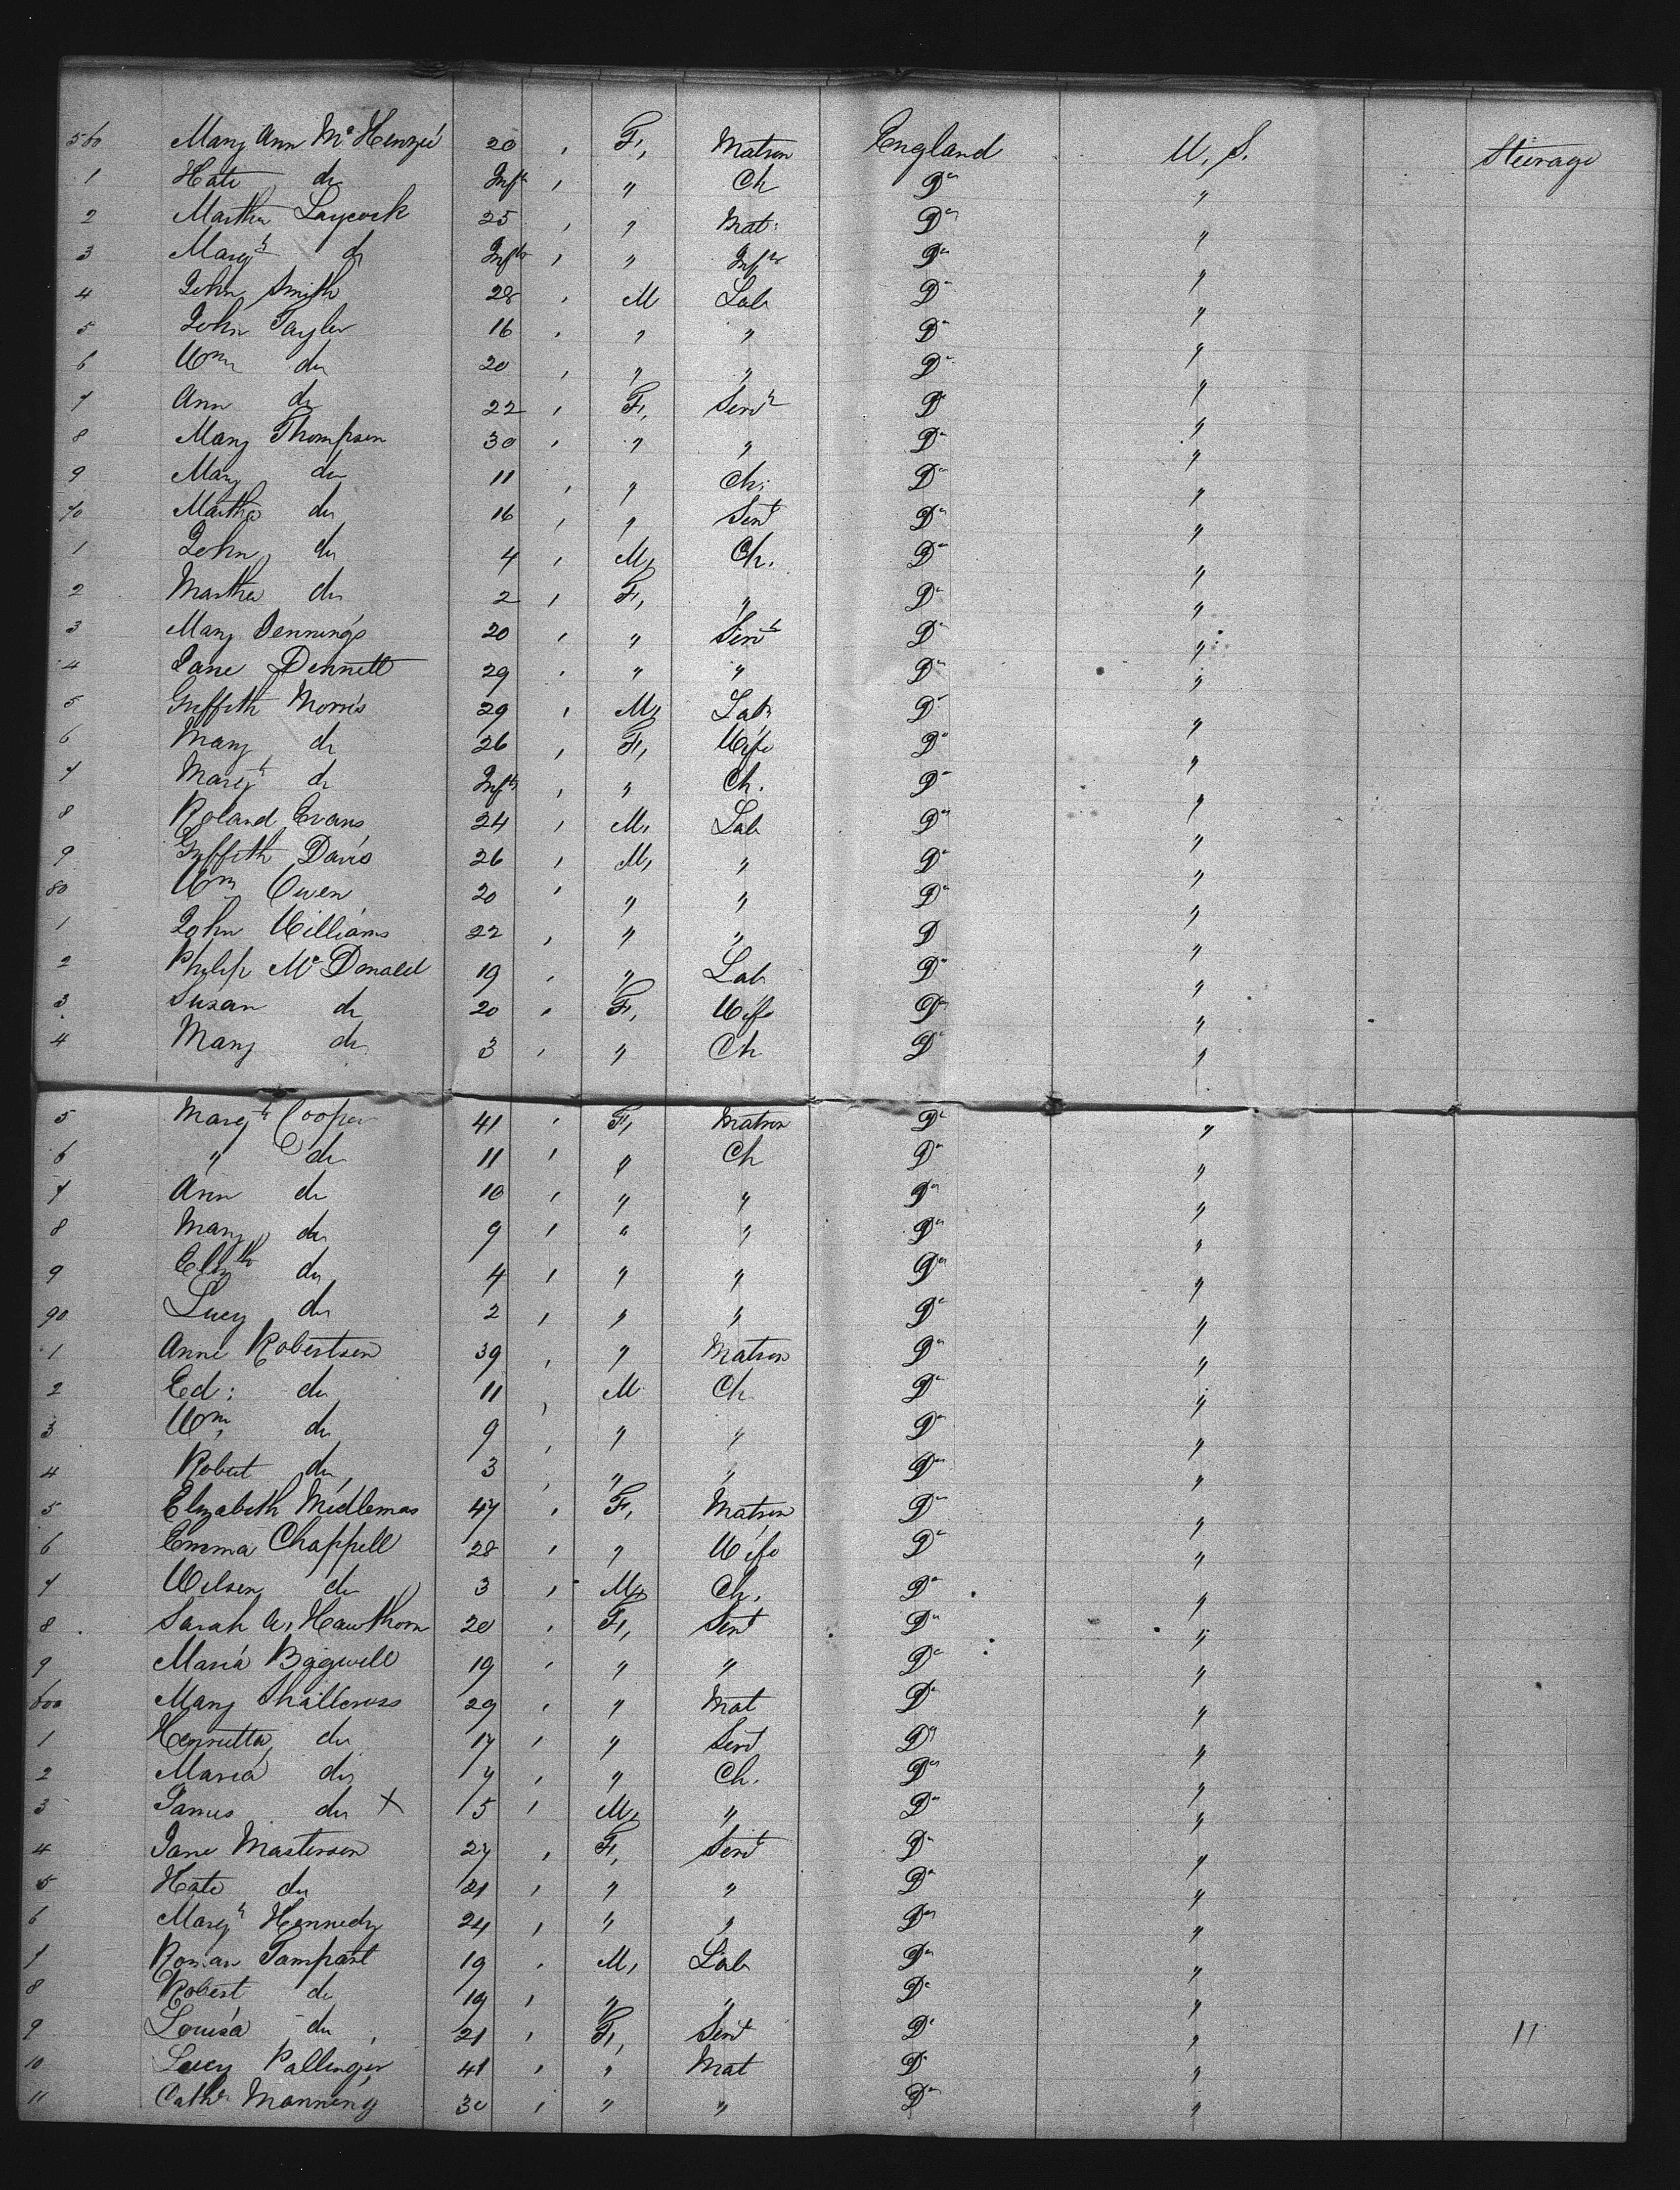 560 Mary Ann McKenzie 20 F, Matron England U, S. Steerage
1 Kate do Inft " Ch Do "
2 Martha Laycock 25 " Mat: Do "
3 Margt do Inft " Inft Do "
4 John Smith 28 M Lab Do "
5 John Taylor 16 " " Do "
6 Wm do 20 " " Do "
7 Ann do 22 F, Servt Do "
8 Mary Thompson 30 " " Do "
9 Mary do 11 " Ch: Do "
70 Martha do 16 " Servt Do "
1 John do 4 M, Ch. Do "
2 Martha do 2 F, " Do "
3 Mary Jennings 20 " Servt Do "
4 Jane Dennett 29 " " Do "
5 Griffith Morris 29 M, Lab Do "
6 Mary do 26 F, Wife Do "
7 Margt do Inft " Ch. Do "
8 Roland Evans 24 M, Lab Do "
9 Griffith Davis 26 M, " Do "
80 Wm Owen 20 " " Do "
1 John Williams 22 " " Do "
2 Philip McDonald 19 " Lab Do "
3 Susan do 20 F, Wife Do "
4 Mary do 3 " Ch Do "
5 Margt Cooper 41 F, Matron Do "
6 " do 11 " Ch Do "
7 Ann do 10 " " Do "
8 Mary do 9 " " Do "
9 Elizth do 4 " " Do "
90 Lucy do 2 " " Do "
1 Anne Robertson 39 " Matron Do "
2 Ed: do 11 M Ch Do "
3 Wm, do 9 " " Do "
4 Robert do 3 " " Do "
5 Elizabeth Midlemas 47 F, Matron Do "
6 Emma Chappell 28 " Wife Do "
7 Wilson do 3 M, Ch. Do "
8 Sarah A, Hawthorn 20 F, Servt Do "
9 Maria Bagwell 19 " " Do "
600 Mary Shallcross 29 " Mat Do "
1 Henrietta do 17 " Servt Do "
2 Maria do 7 " Ch. Do "
3 James do X 5 M, " Do "
4 Jane Masterson 27 F, Servt Do "
5 Kate do 21 " " Do "
6 Margt Kennedy 24 " " Do "
7 Roman Tampart 19 M, Lab Do "
8 Robert do 19 " " Do "
9 Louisa do 21 F, Servt Do " 11
10 Lucy Pallinger 41 " Mat Do "
11 Cathe Manning 30 " " Do "